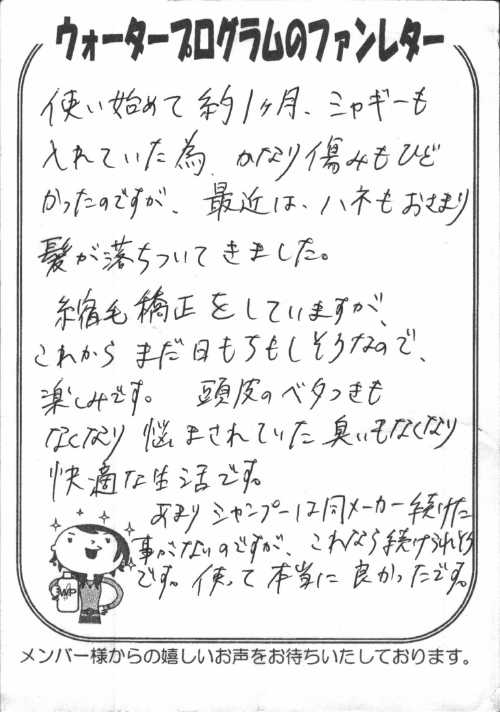 ウォータープログラムのファンレター
使い始めて約1ヶ月、シャギーも
入れていた為、かなり傷みもひど
かったのですが、最近は、ハネもおさまり
髪が落ちついてきました。
縮毛矯正をしていますが、
これからまだ日もちもしそうなので、
楽しみです。頭皮のベタつきも
なくなり悩まされていた臭いもなくなり
快適な生活です。
あまりシャンプーは同メーカー続けた
事がないのですが、これなら続けられそう
です。使って本当に良かったです。
WP
メンバー様からの嬉しいお声をお待ちいたしております。